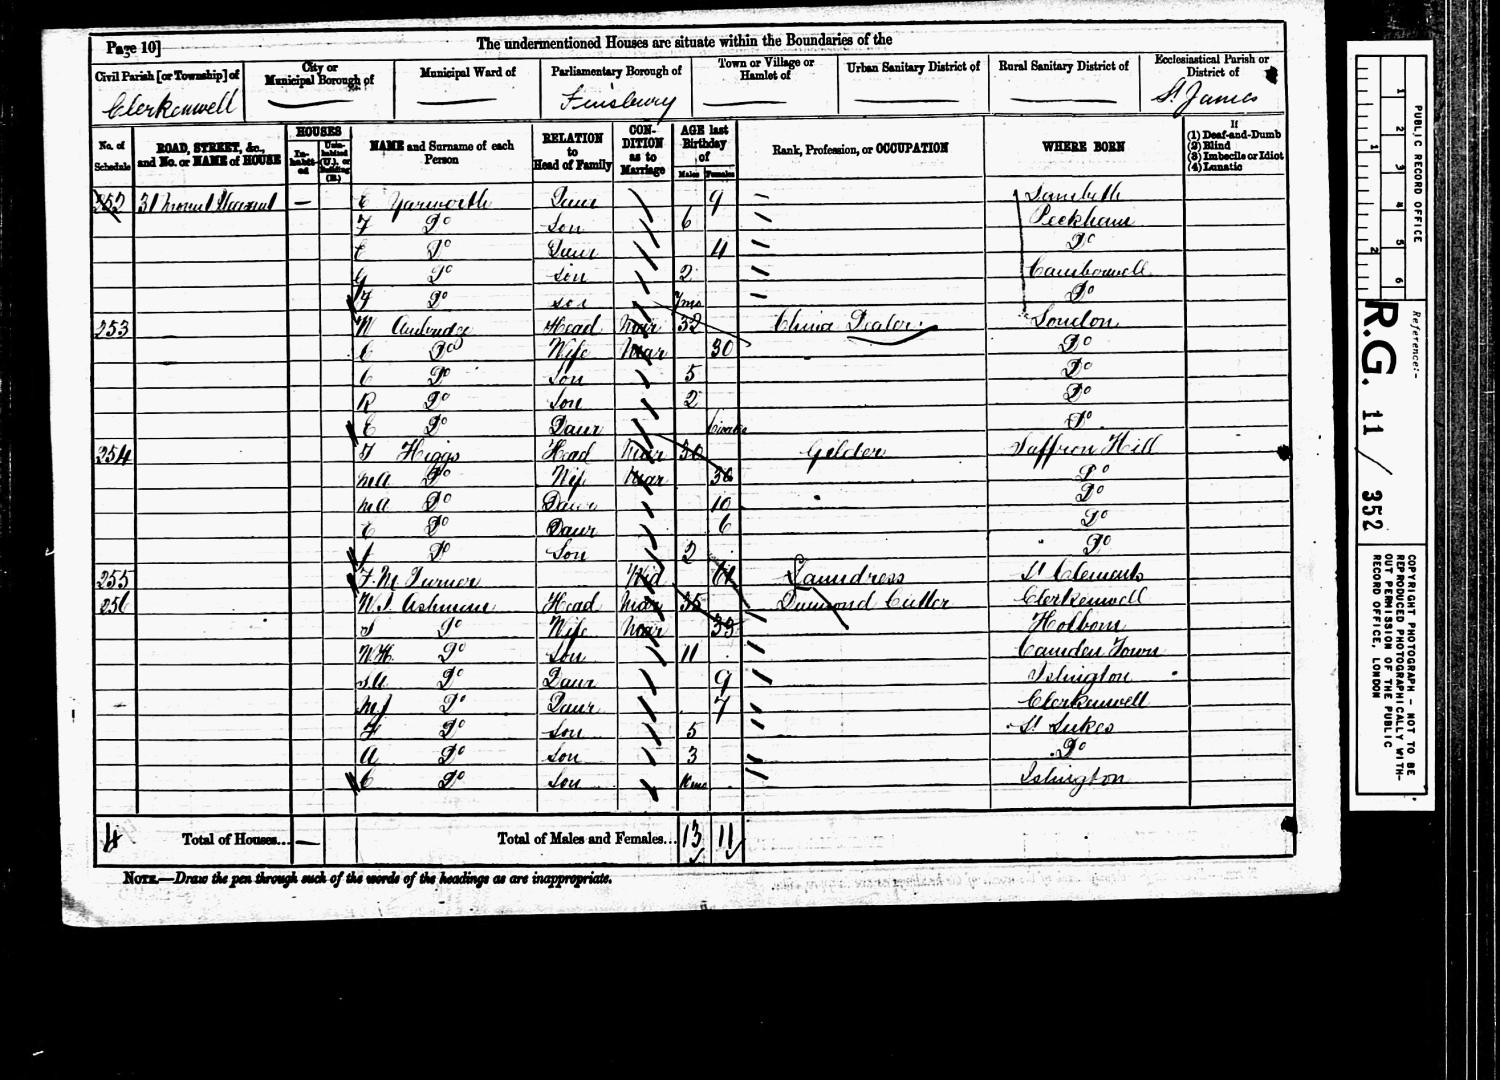 Page 10]
The undermentioned Houses are situate within the Boundaries of the
Civil Parish [or Township] of
Clerkenwell
City or Municipal Borough of
Municipal Ward of
Parliamentary Borough of
Finsbury
Town or Village or Hamlet of
Urban Sanitary District of
Rural Sanitary District of
Ecclesiastical Parish or District of
St James
No. of Schedule
ROAD, STREET, &c., and No. or NAME of HOUSE
HOUSES
In-habit-ed
Unin-habited (U.), or Building (B.)
NAME and Surname of each Person
RELATION to Head of Family
CON-DITION as to Marriage
AGE last Birthday of
Males Females
Rank, Profession, or OCCUPATION
WHERE BORN
If
(1) Deaf-and-Dumb
(2) Blind
(3) Imbecile or Idiot
(4) Lunatic
252 31 Mount Pleasant — E Yarworth Daur 9 Lambeth
F Do Son 6 Peckham
E Do Daur 4 Do
G Do Son 2 Camberwell
F Do Son 7ms Do
253 W Head Mar 32 China Dealer London
C Do Wife Mar 30 Do
C Do Son 5 Do
R Do Son 2 Do
E Do Daur Do
254 Higgs Head Mar 30 Gilder Saffron Hill
M A Do Wife Mar 30 Do
M A Do Daur 10 Do
E Do Daur 6 Do
J Do Son 2 Do
255 F. M. Turner Wid Laundress St Clements
256 W. J. Ashman Head Mar 35 Diamond Cutter Clerkenwell
S Do Wife Mar 33 Holborn
W H. Do Son 11 Camden Town
S A Do Daur 9 Islington
M J Do Daur 7 Clerkenwell
F Do Son 5 St Lukes
A Do Son 3 Do
C Do Son Islington
4 Total of Houses... — Total of Males and Females... 13 11
NOTE.—Draw the pen through such of the words of the headings as are inappropriate.
PUBLIC RECORD OFFICE
1 2 3 4 5 6
1 2
Reference:-
R.G. 11 / 352
COPYRIGHT PHOTOGRAPH - NOT TO BE
REPRODUCED PHOTOGRAPHICALLY WITH-
OUT PERMISSION OF THE PUBLIC
RECORD OFFICE, LONDON